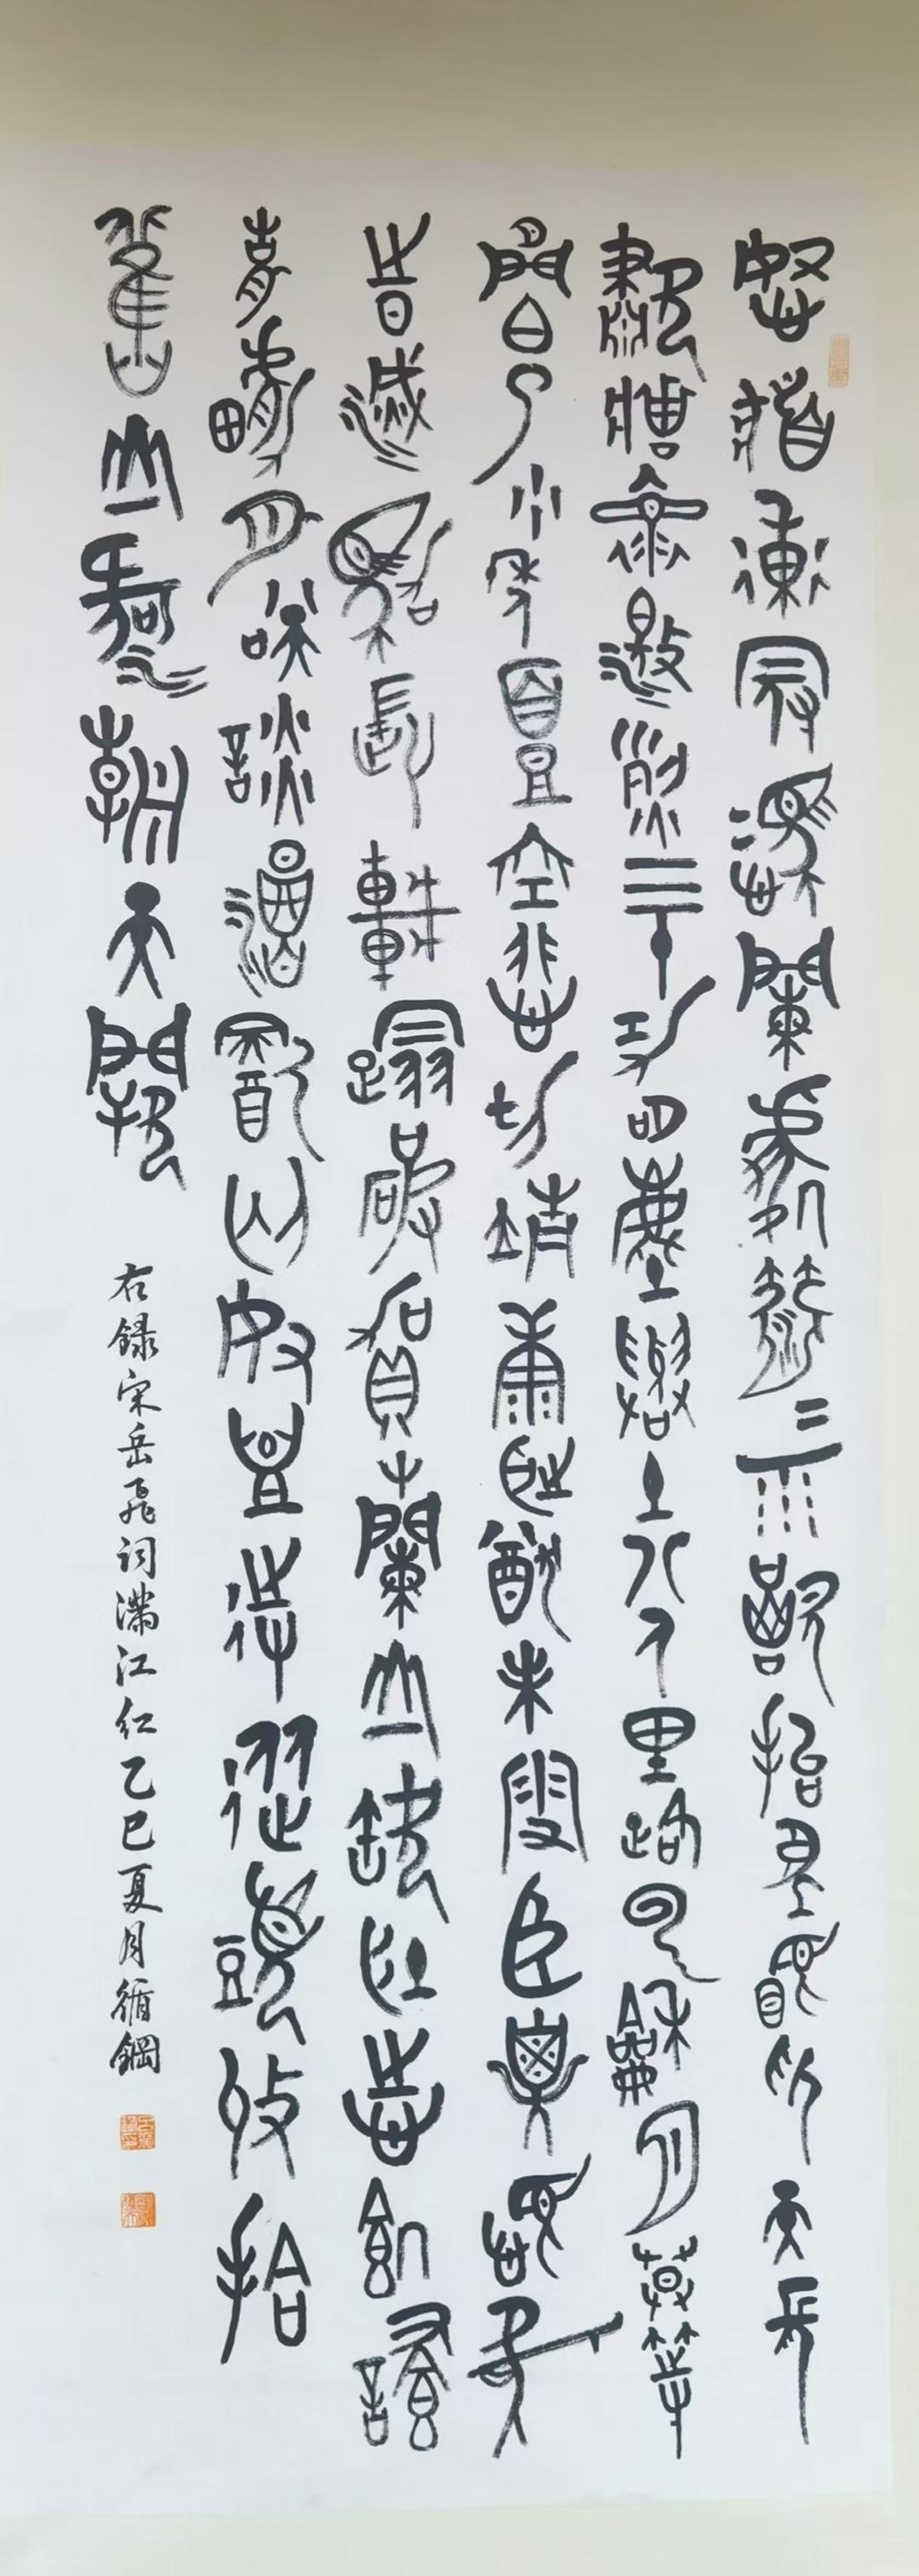 怒髮衝冠憑闌處瀟=雨歇抬望眼仰天長
嘯壯懷激烈三十功名塵與土八千里路雲和月莫等
閒白了少年頭空悲切靖康恥猶未雪臣子恨何
時滅駕長車踏破賀蘭山缺壯志飢餐
胡虜肉笑談渴飲匈奴血待從頭收拾
舊山河朝天闕
右錄宋岳飛詞滿江紅乙巳夏月循鋼